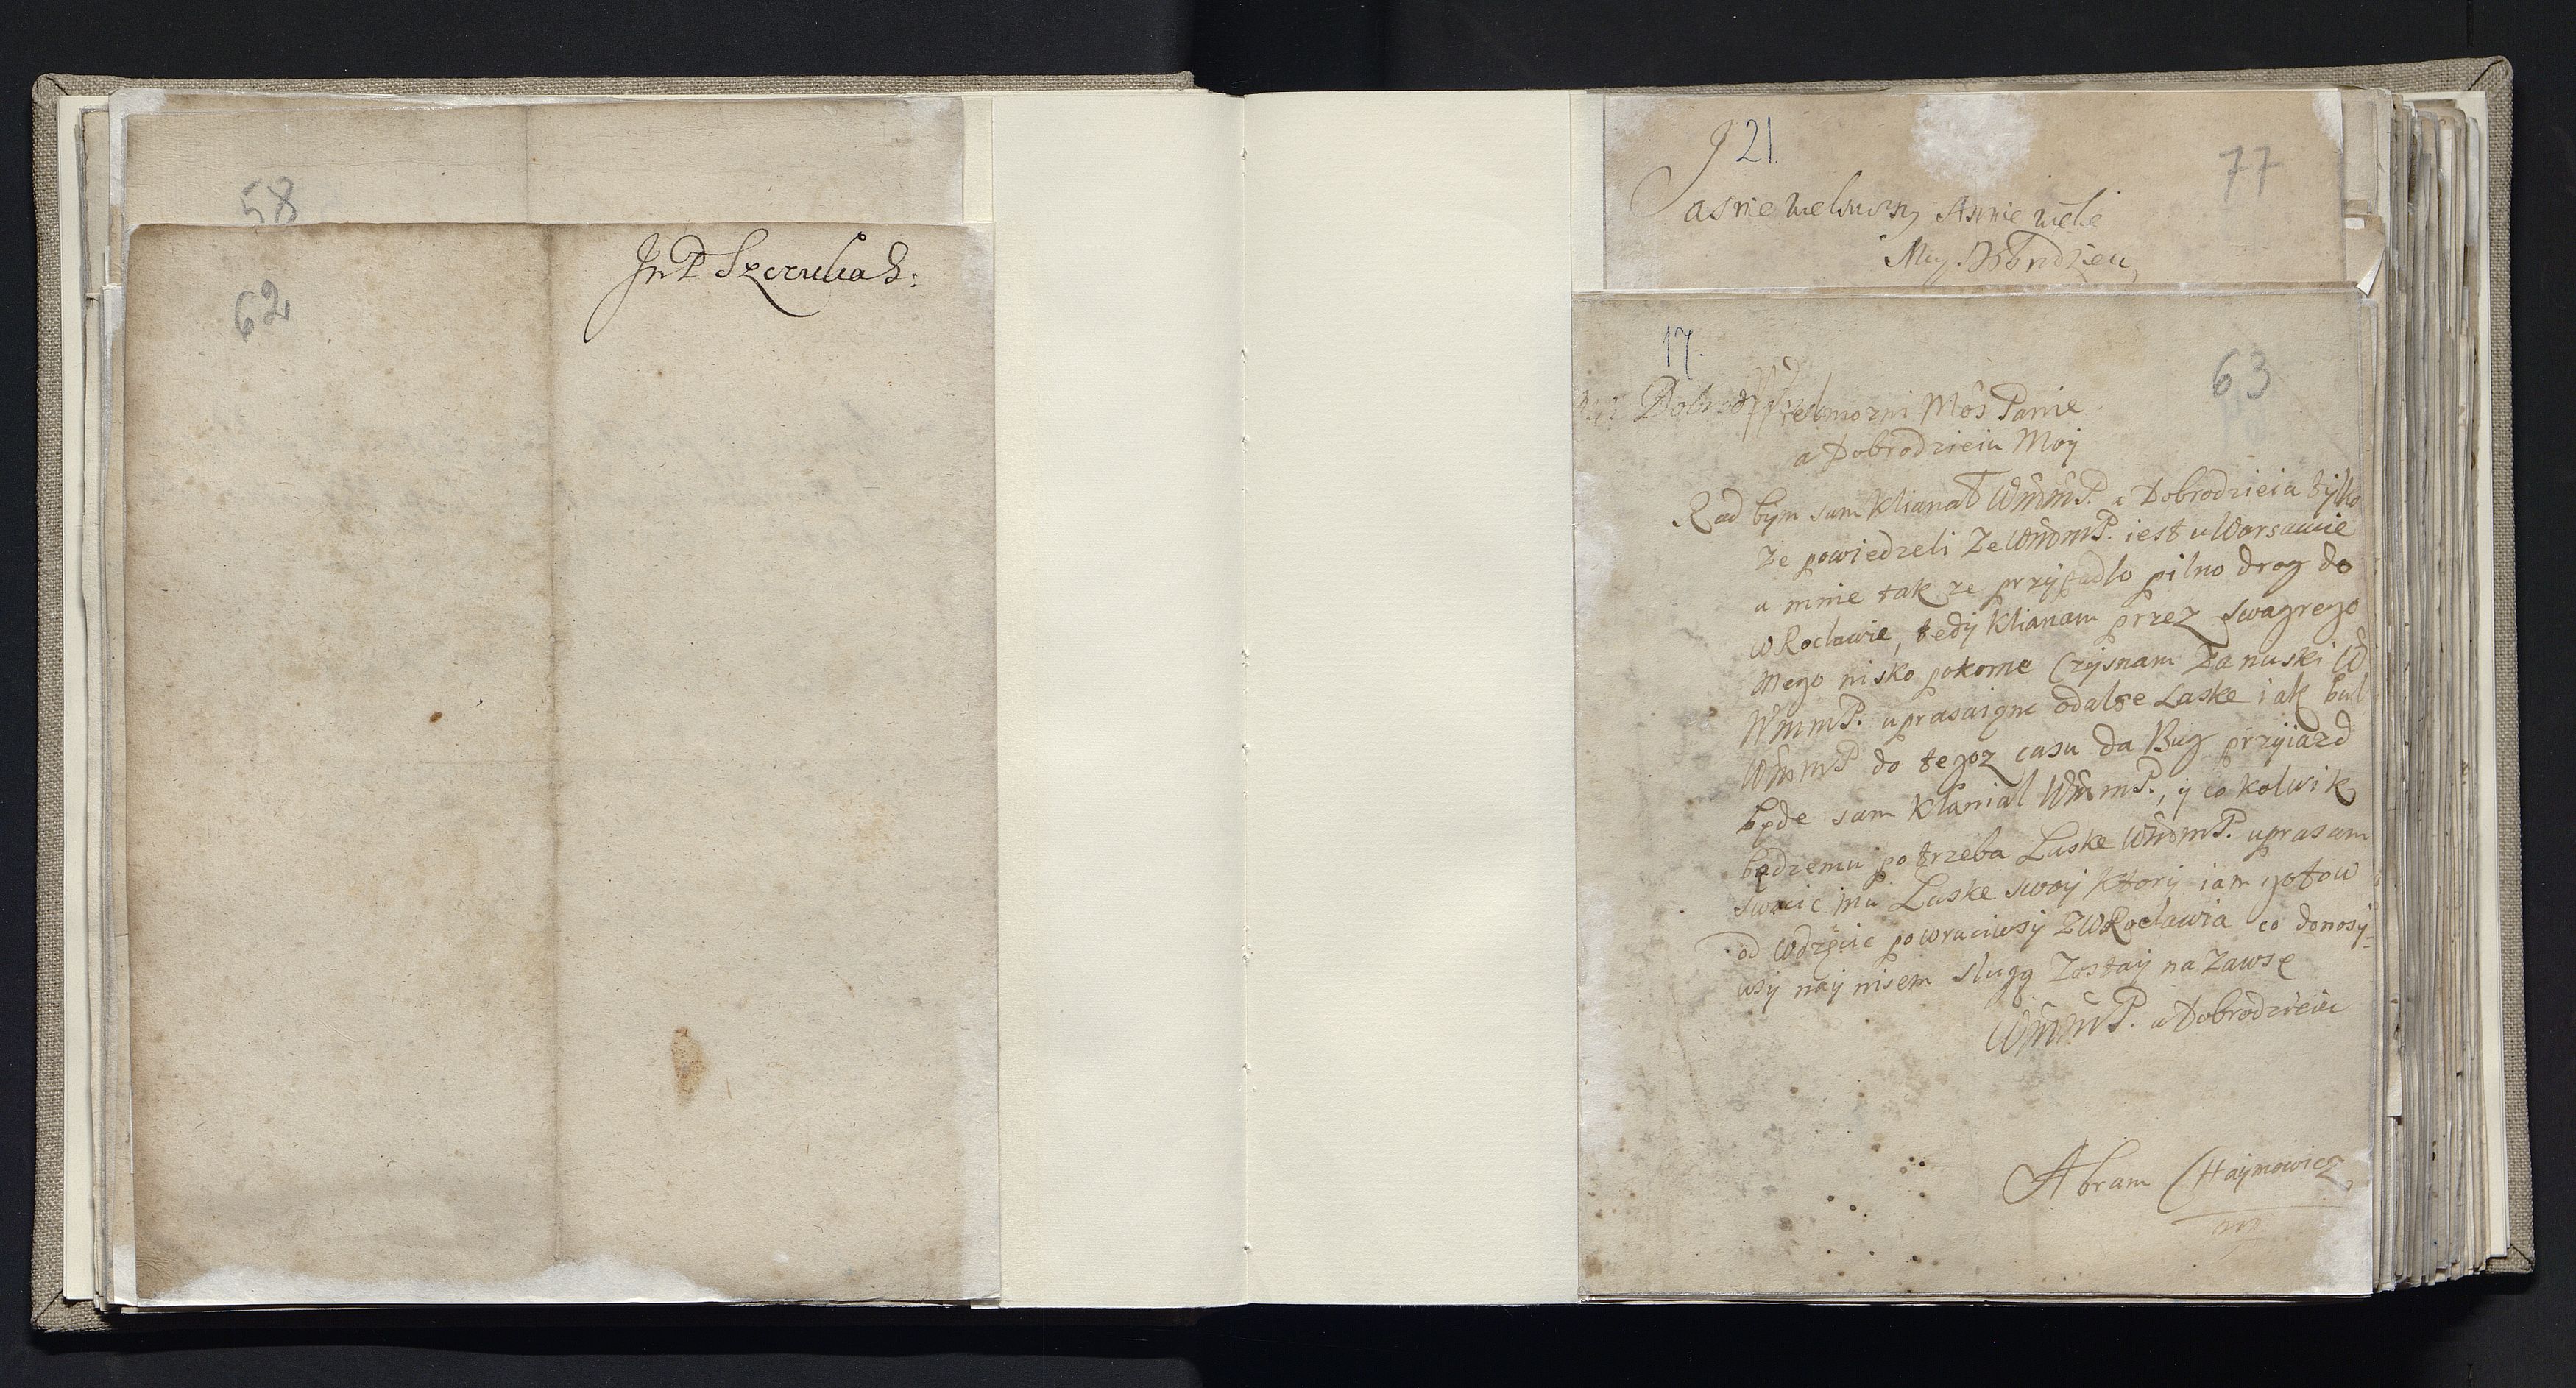 58
62
JnP Szczuka S:
J 21.
77
Jasnie
Moy Dobrodzieiu
17.
63
Wielmozni Mõs Panie
a Dobrodzieiu Moy
Rad bÿm sam Klianał WMMP. a Dobrodzieia tÿlko
Ze powiedzeli Ze WMMP. iest u Warsawie
u mnie tak ze przÿpadlo pilno drog do
wRoclawie, tedÿ Klianam przez swagrego
mego nisko pokorne Czÿsnam Za nuski W
WMMP. uprasaigne odalse Laske iak bul
WMMP do tegoz casu da Bug przyiazd
będe sam Klanial WMMP., ÿ co kolwik
będzemu potrzeba Laske WMMP. uprasam
swacic mu Laske swoÿ Ktorÿ iam gotow
od wdzęcic powraciwsÿ ZWRoclawia co donosÿ-
wsÿ naÿ nisem slugą Zostaÿ na Zawsę
WMMP. a Dobrodzieiu
Abram Haÿmowicz
mp